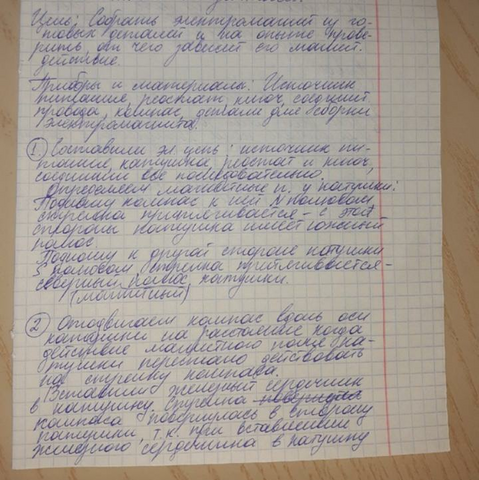 Цель: Собрать электромагнит из го-
товых деталей и на опыте прове-
рить, от чего зависит его магнит.
действие.
Приборы и материалы: Источник
питания, реостат, ключ, соединит.
провода, компас, детали для сборки
электромагнита.
① Составили эл. цепь: источник пи-
тания, катушка, реостат и ключ,
соединили все последовательно.
Определяем магнитные п. у катушки:
Подношу компас к ней N полюсом,
стрелка притягивается – с этой
стороны катушка имеет южный
полюс.
Подношу к другой стороне катушки
S полюсом, стрелка притягивается –
северный полюс катушки.
(магнитный)
② Отодвигаем компас вдоль оси
катушки на расстояние когда
действие магнитного поля ка-
тушки перестало действовать
на стрелку компаса.
Вставили железный сердечник
в катушку. Стрелка
компаса повернулась в сторону
катушки т.к. при вставлении
железного сердечника в катушку